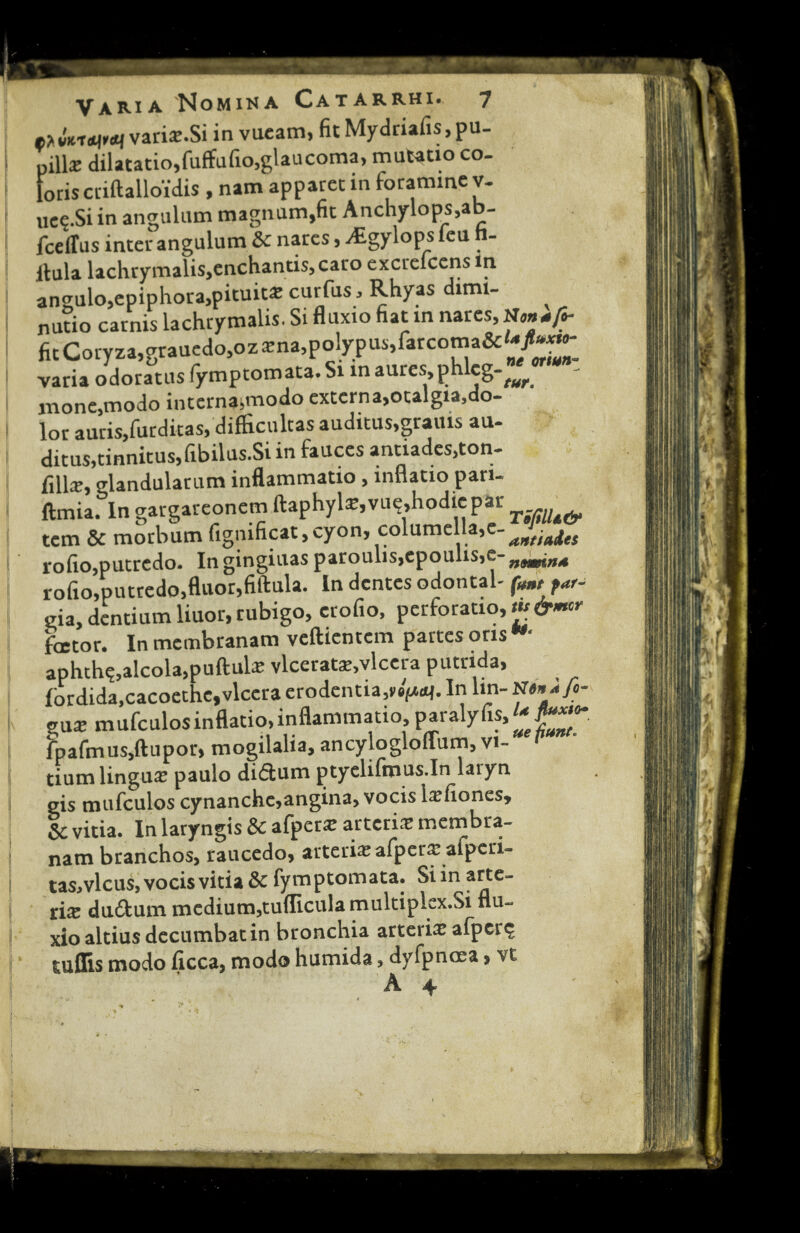 VARIA NOMINA CATARRHI. 7
φλύκταιναι variæ.Si in vueam, fit Mydriaſis, pu-
pillæ dilatatio,ſuffuſio,glaucoma, mutatio co-
loris criſtalloïdis , nam apparet in foramine v-
ueę.Si in angulum magnum,fit Anchylops,ab-
ſceſſus inter angulum & nares, Ægylops ſeu fi-
ſtula lachrymalis,enchantis,caro excreſcens in
angulo,epiphora,pituitæ curſus, Rhyas dimi-
nutio carnis lachrymalis. Si fluxio fiat in nares,
fit Coryza,grauedo,ozæna,polypus,ſarcoma&
varia odoratus ſymptomata. Si in aures, phleg-
mone,modo interna,modo externa,otalgia,do-
lor auris,ſurditas, difficultas auditus,grauis au-
ditus,tinnitus,ſibilus.Si in fauces antiades,ton-
ſillæ, glandularum inflammatio , inflatio pari-
ſtmia. In gargareonem ſtaphylæ,vuę,hodie par
tem & morbum ſignificat, cyon, columella,e-
roſio,putredo. In gingiuas paroulis,epoulis,e-
roſio,putredo,fluor,fiſtula. In dentes odontal-
gia, dentium liuor, rubigo, eroſio, perforatio,
fœtor. In membranam veſtientem partes oris
aphthę,alcola,puſtulæ vlceratæ,vlcera putrida,
ſordida,cacoethe,vlcera erodentia,νόμαι. In lin-
guæ muſculos inflatio, inflammatio, paralyſis,
ſpaſmus,ſtupor, mogilalia, ancylogloſſum, vi-
tium linguæ paulo dictum ptyeliſmus.In laryn
gis muſculos cynanche,angina, vocis læſiones,
& vitia. In laryngis & aſperæ arteriæ membra-
nam branchos, raucedo, arteriæ aſperæ aſperi-
tas,vlcus, vocis vitia & ſymptomata. Si in arte-
riæ ductum medium,tuſſicula multiplex.Si flu-
xio altius decumbat in bronchia arteriæ aſperę
tuſſis modo ſicca, modo humida, dyſpnœa, vt
A 4
Non à ſo-
la fluxio-
ne oriun-
tur.
Toſillæ &
antiades
nomina
ſunt par-
tis & mor
bi.
Non à ſo-
la fluxio-
ue fiunt.